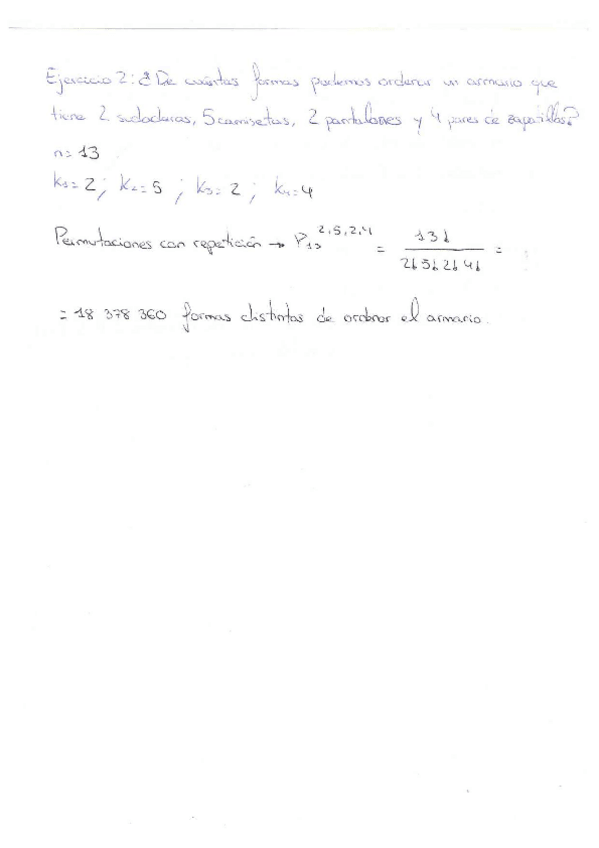 Ejercicio 2: ¿De cuántas formas podemos ordenar un armario que
tiene 2 sudaderas, 5 camisetas, 2 pantalones y 4 pares de zapatillas?
n = 13
K₁ = 2 ; K₂ = 5 ; K₃ = 2 ; K₄ = 4
Permutaciones con repetición → P₁₃^2,5,2,4 = 13! / 2! 5! 2! 4! =
= 18 378 360 formas distintas de ordenar el armario.